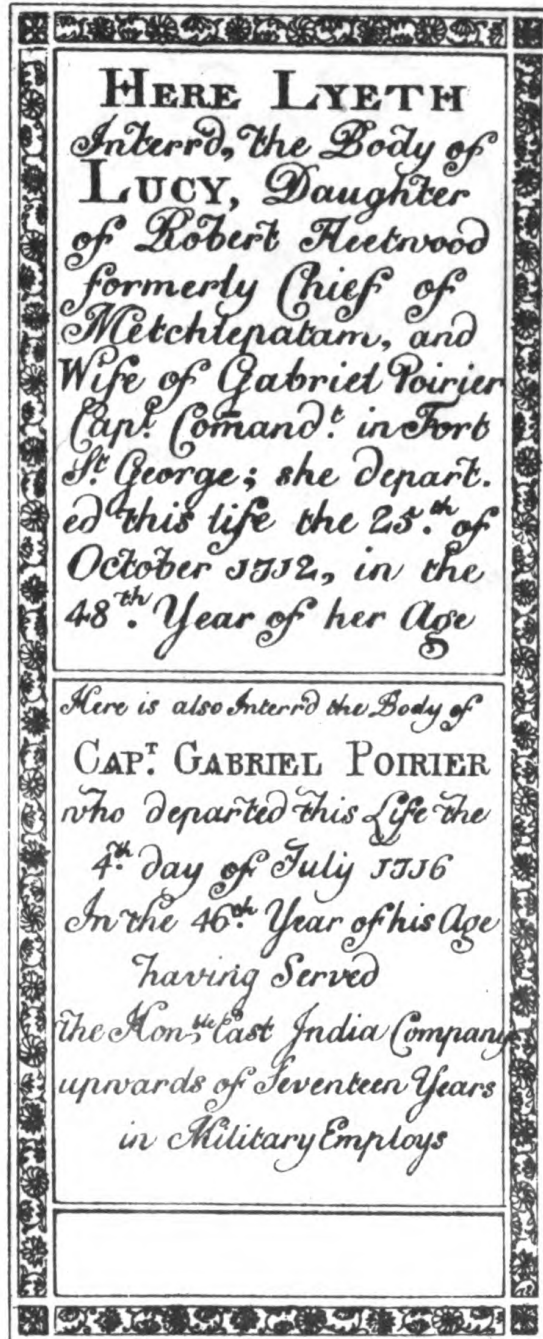 HERE LYETH
Interrd, the Body of
LUCY, Daughter
of Robert Fleetwood
formerly Chief of
Metchlepatam, and
Wife of Gabriel Poirier
Capt. Com̅and.t in Fort
St. George; she depart.
ed this life the 25.th of
October 1712, in the
48th. Year of her Age
Here is also Interr'd the Body of
CAPT. GABRIEL POIRIER
who departed this Life the
4.th day of July 1716
In the 46th. Year of his Age
having Served
the Hon;ble East India Company
upwards of Seventeen Years
in Military Employs